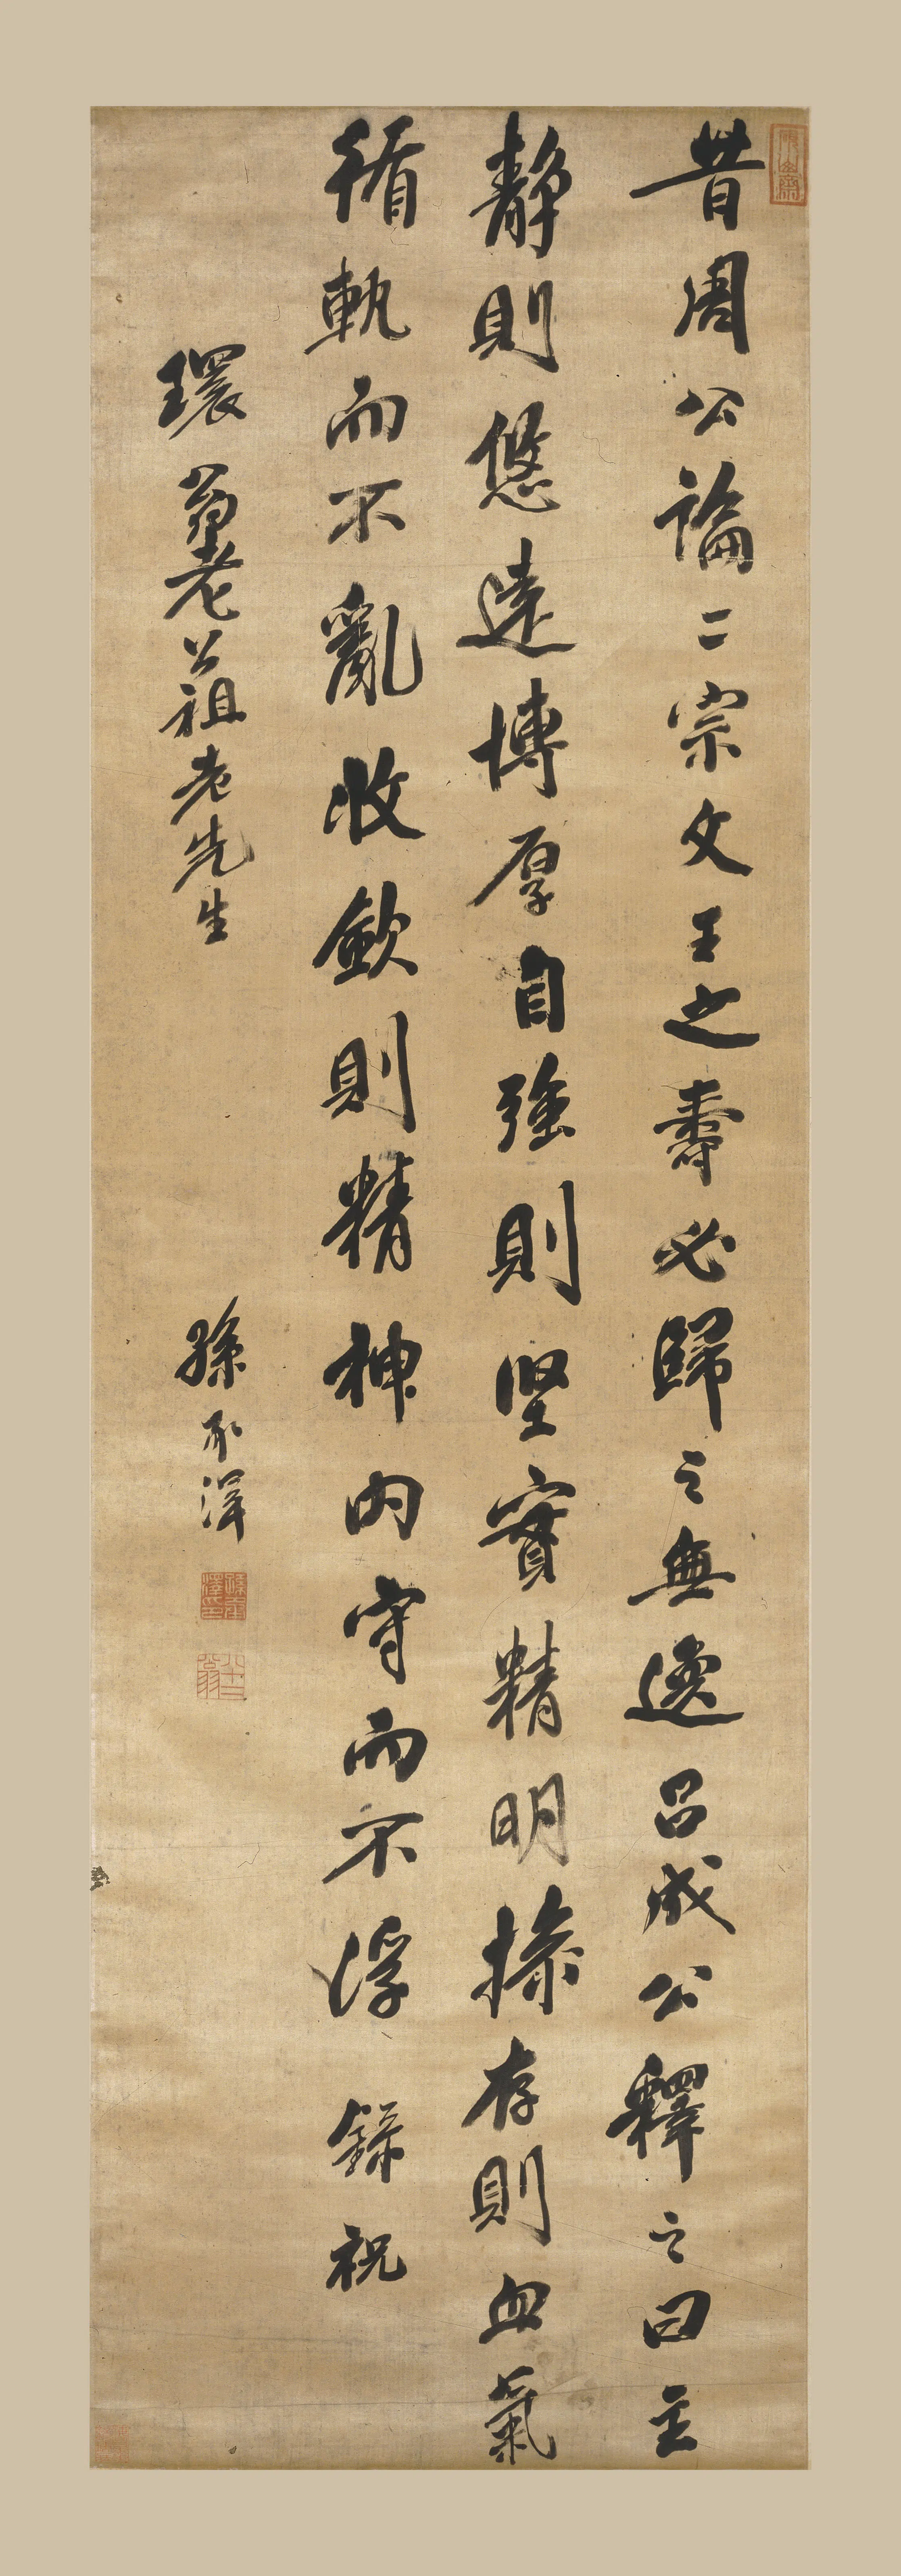 昔周公論二宗文王之壽必歸之無逸呂成公釋之曰主
靜則悠遠博厚自強則堅實精明操存則血氣
循軌而不亂收斂則精神內守而不浮 錄祝
環翁老公祖老先生
孫承澤
孫承澤印
八十二翁